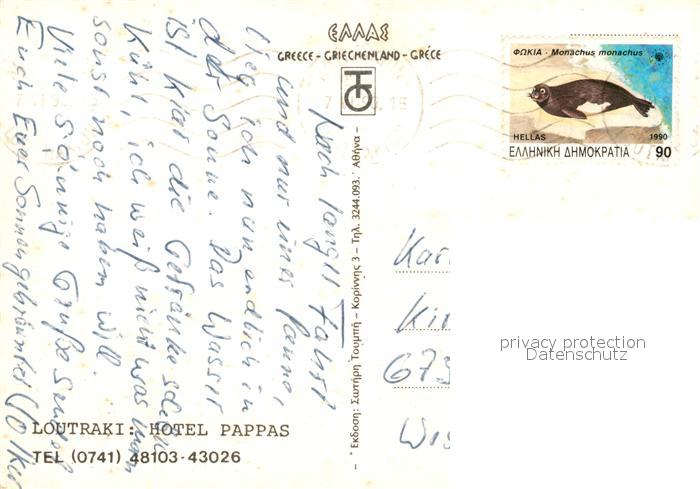 ΕΛΛΑΣ
GREECE - GRIECHENLAND - GRÈCE
ΦΩΚΙΑ · Monachus monachus
HELLAS 1990
ΕΛΛΗΝΙΚΗ ΔΗΜΟΚΡΑΤΙΑ 90
Nach langer Fahrt
und nur einer Panne,
lieg ich nun endlich in
der Sonne. Das Wasser
ist klar die Getränke schön
Kühl, ich weiß nicht was man
sonst noch haben will.
Viele sonnige Grüße sendet
Euch Euer Sonnengebräunter Volker
Έκδοση: Σωτήρη Τουμπή - Κορίννης 3 - Τηλ. 3244.093. Αθήνα
Kar
Kir
673
Wis
privacy protection
Datenschutz
LOUTRAKI: HOTEL PAPPAS
TEL (0741) 48103-43026